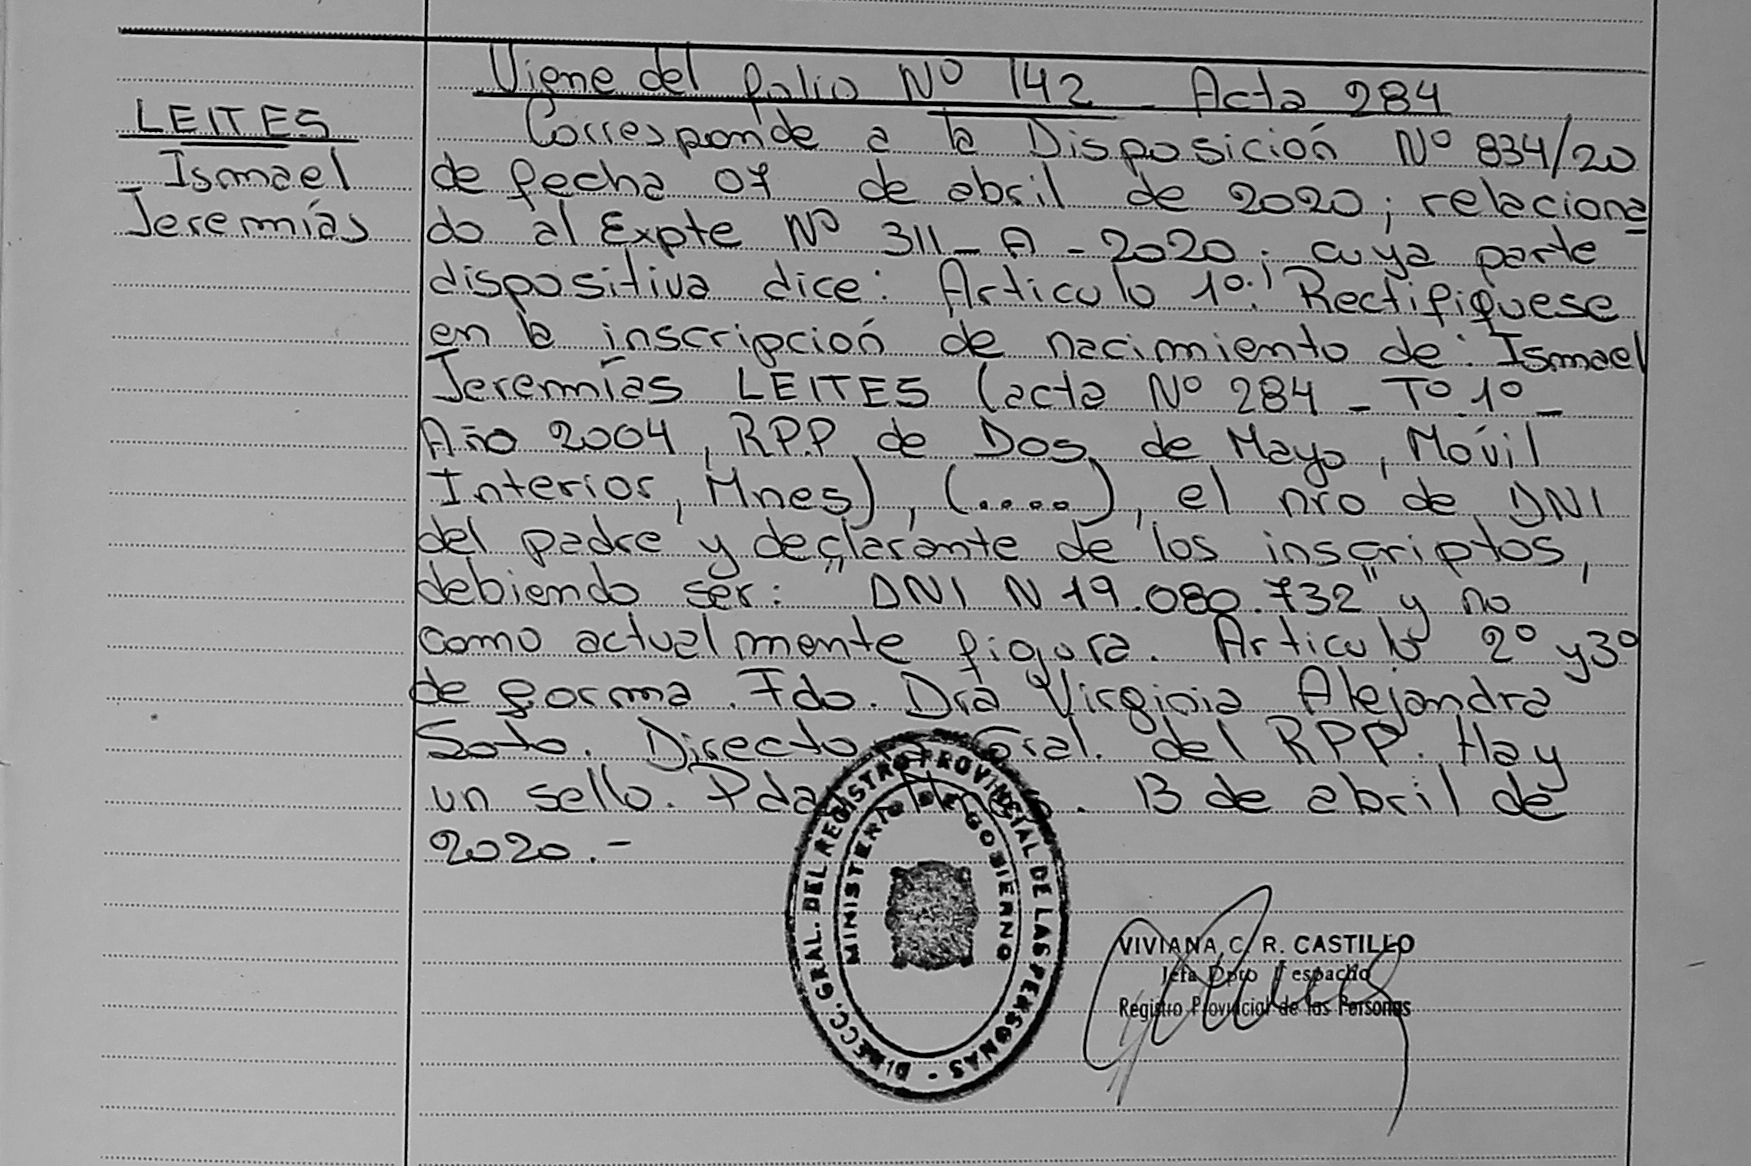 Viene del folio Nº 142 - Acta 284
LEITES
Ismael
Jeremías
Corresponde a la Disposición Nº 834/20
de fecha 07 de abril de 2020; relaciona
do al Expte Nº 311-A-2020; cuya parte
dispositiva dice: Articulo 1º: Rectifiquese
en la inscripción de nacimiento de: Ismael
Jeremías LEITES (acta Nº 284 - Tº 1º -
Año 2004, RPP de Dos de Mayo, Móvil
Interior, Mnes), (.....), el nro de DNI
del padre y declarante de los inscriptos,
debiendo ser: "DNI N 19.080.732" y no
como actualmente figura. Articulo 2º y 3º
de forma. Fdo. Dra Virginia Alejandra
Soto. Directora Gral. del RPP. Hay
un sello. Pdas. 13 de abril de
2020.-
DIRECC. GRAL. DEL REGISTRO PROVINCIAL DE LAS PERSONAS -
MINISTERIO DE GOBIERNO
VIVIANA C. R. CASTILLO
Jefa Dpto Despacho
Registro Provincial de las Personas